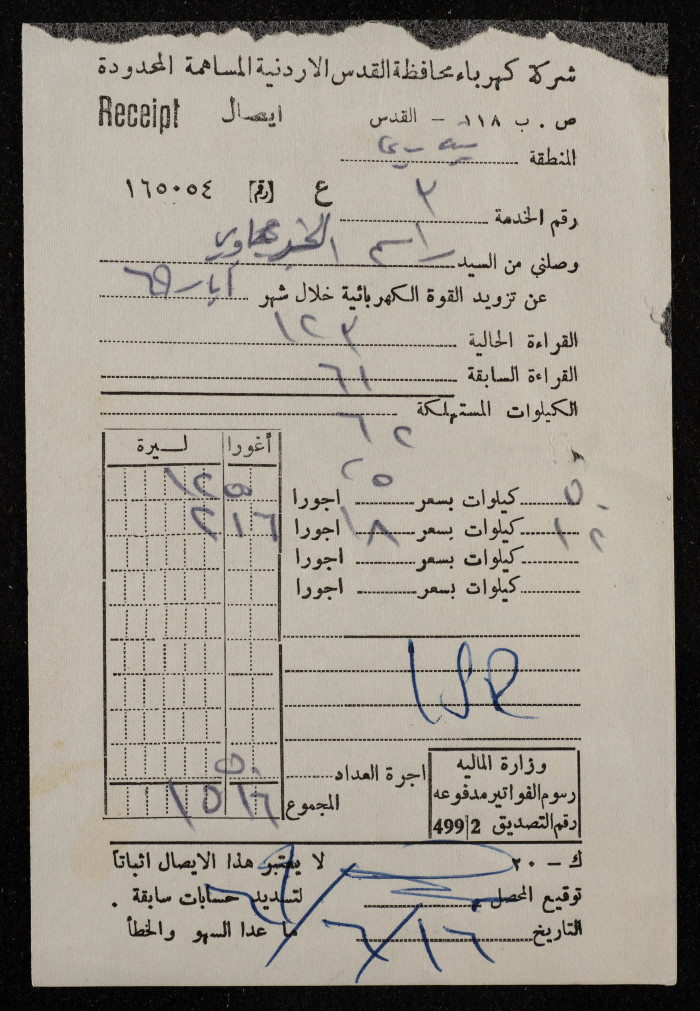 شركة كهرباء محافظة القدس الاردنية المساهمة المحدودة
ص . ب ١١٨ – القدس ايصال Receipt
المنطقة
ع [رقم] ١٦٥٠٥٤
رقم الخدمة ٣
وصلني من السيد راسم
عن تزويد القوة الكهربائية خلال شهر أيار ٦٩
القراءة الحالية ١٢٣
القراءة السابقة ٦١
الكيلوات المستهلكة ٦٢
أغورا ليرة
٥٠ كيلوات بسعر ٢٥ اجورا ١٢ ٥٠
١٢ كيلوات بسعر ١٨ اجورا ٢ ١٦
كيلوات بسعر اجورا
كيلوات بسعر اجورا
اجرة العداد ٥٠
المجموع ١٥ ١٦
وزارة الماليه
رسوم الفواتير مدفوعه
رقم التصديق 2|499
ك – ٢٠ لا يعتبر هذا الايصال اثباتاً
توقيع المحصل لتسديد حسابات سابقة .
التاريخ ١٦/٦/٦٩ ما عدا السهو والخطأ